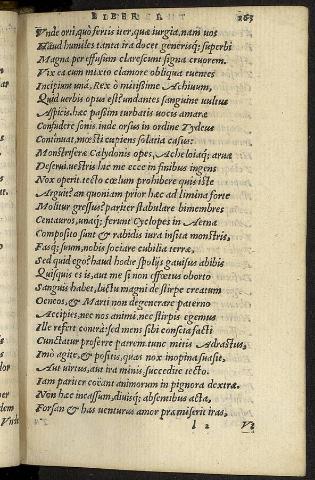 LIBER
263
Vnde orti, quò fertis iter, quæ iurgia, nam uos
Haud humiles tanta ira docet, generisq́; superbi
Magna per effusum clarescunt signa cruorem.
Vix ea cum mixto clamore obliqua tuentes
Incipiunt una, Rex ò mitissime Achiuum,
Quid uerbis opus est? undantes sanguine uultus
Aspicis. hæc passim turbatis uocis amaræ
Confudere sonis. inde orsus in ordine Tydeus
Continuat, mœsti cupiens solatia casus:
Monstriferæ Calydonis opes, Acheloiaq́; arua
Deserui. uestris hic me ecce in finibus ingens
Nox operit. tecto cœlum prohibere quis iste
Arguit? an quoniam prior hæc ad limina forte
Molitur gressus? pariter stabulare bimembres
Centauros, unaq́; ferunt Cyclopes in Aetna
Composito sunt & rabidis iura insita monstris,
Fasq́; suum, nobis sociare cubilia terræ,
Sed quid ego? haud hodie spolijs gauisus abibis
Quisquis es is, aut me si non effœtus oborto
Sanguis habet, luctu magni de stirpe creatum
Oeneos, & Marti non degenerare paterno
Accipies, nec nos animi, nec stirpis egemus
Ille refert contrà: sed mens sibi conscia facti
Cunctatur proferre parem. tunc mitis Adrastus,
Imò agite, & positis, quas nox inopina suasit,
Aut uirtus, aut ira minis succedite tecto.
Iam pariter coëant animorum in pignora dextræ.
Non hæc incassum, diuisq́; absentibus acta,
Forsan & has uenturus amor præmiserit iras,
l 2
Vt